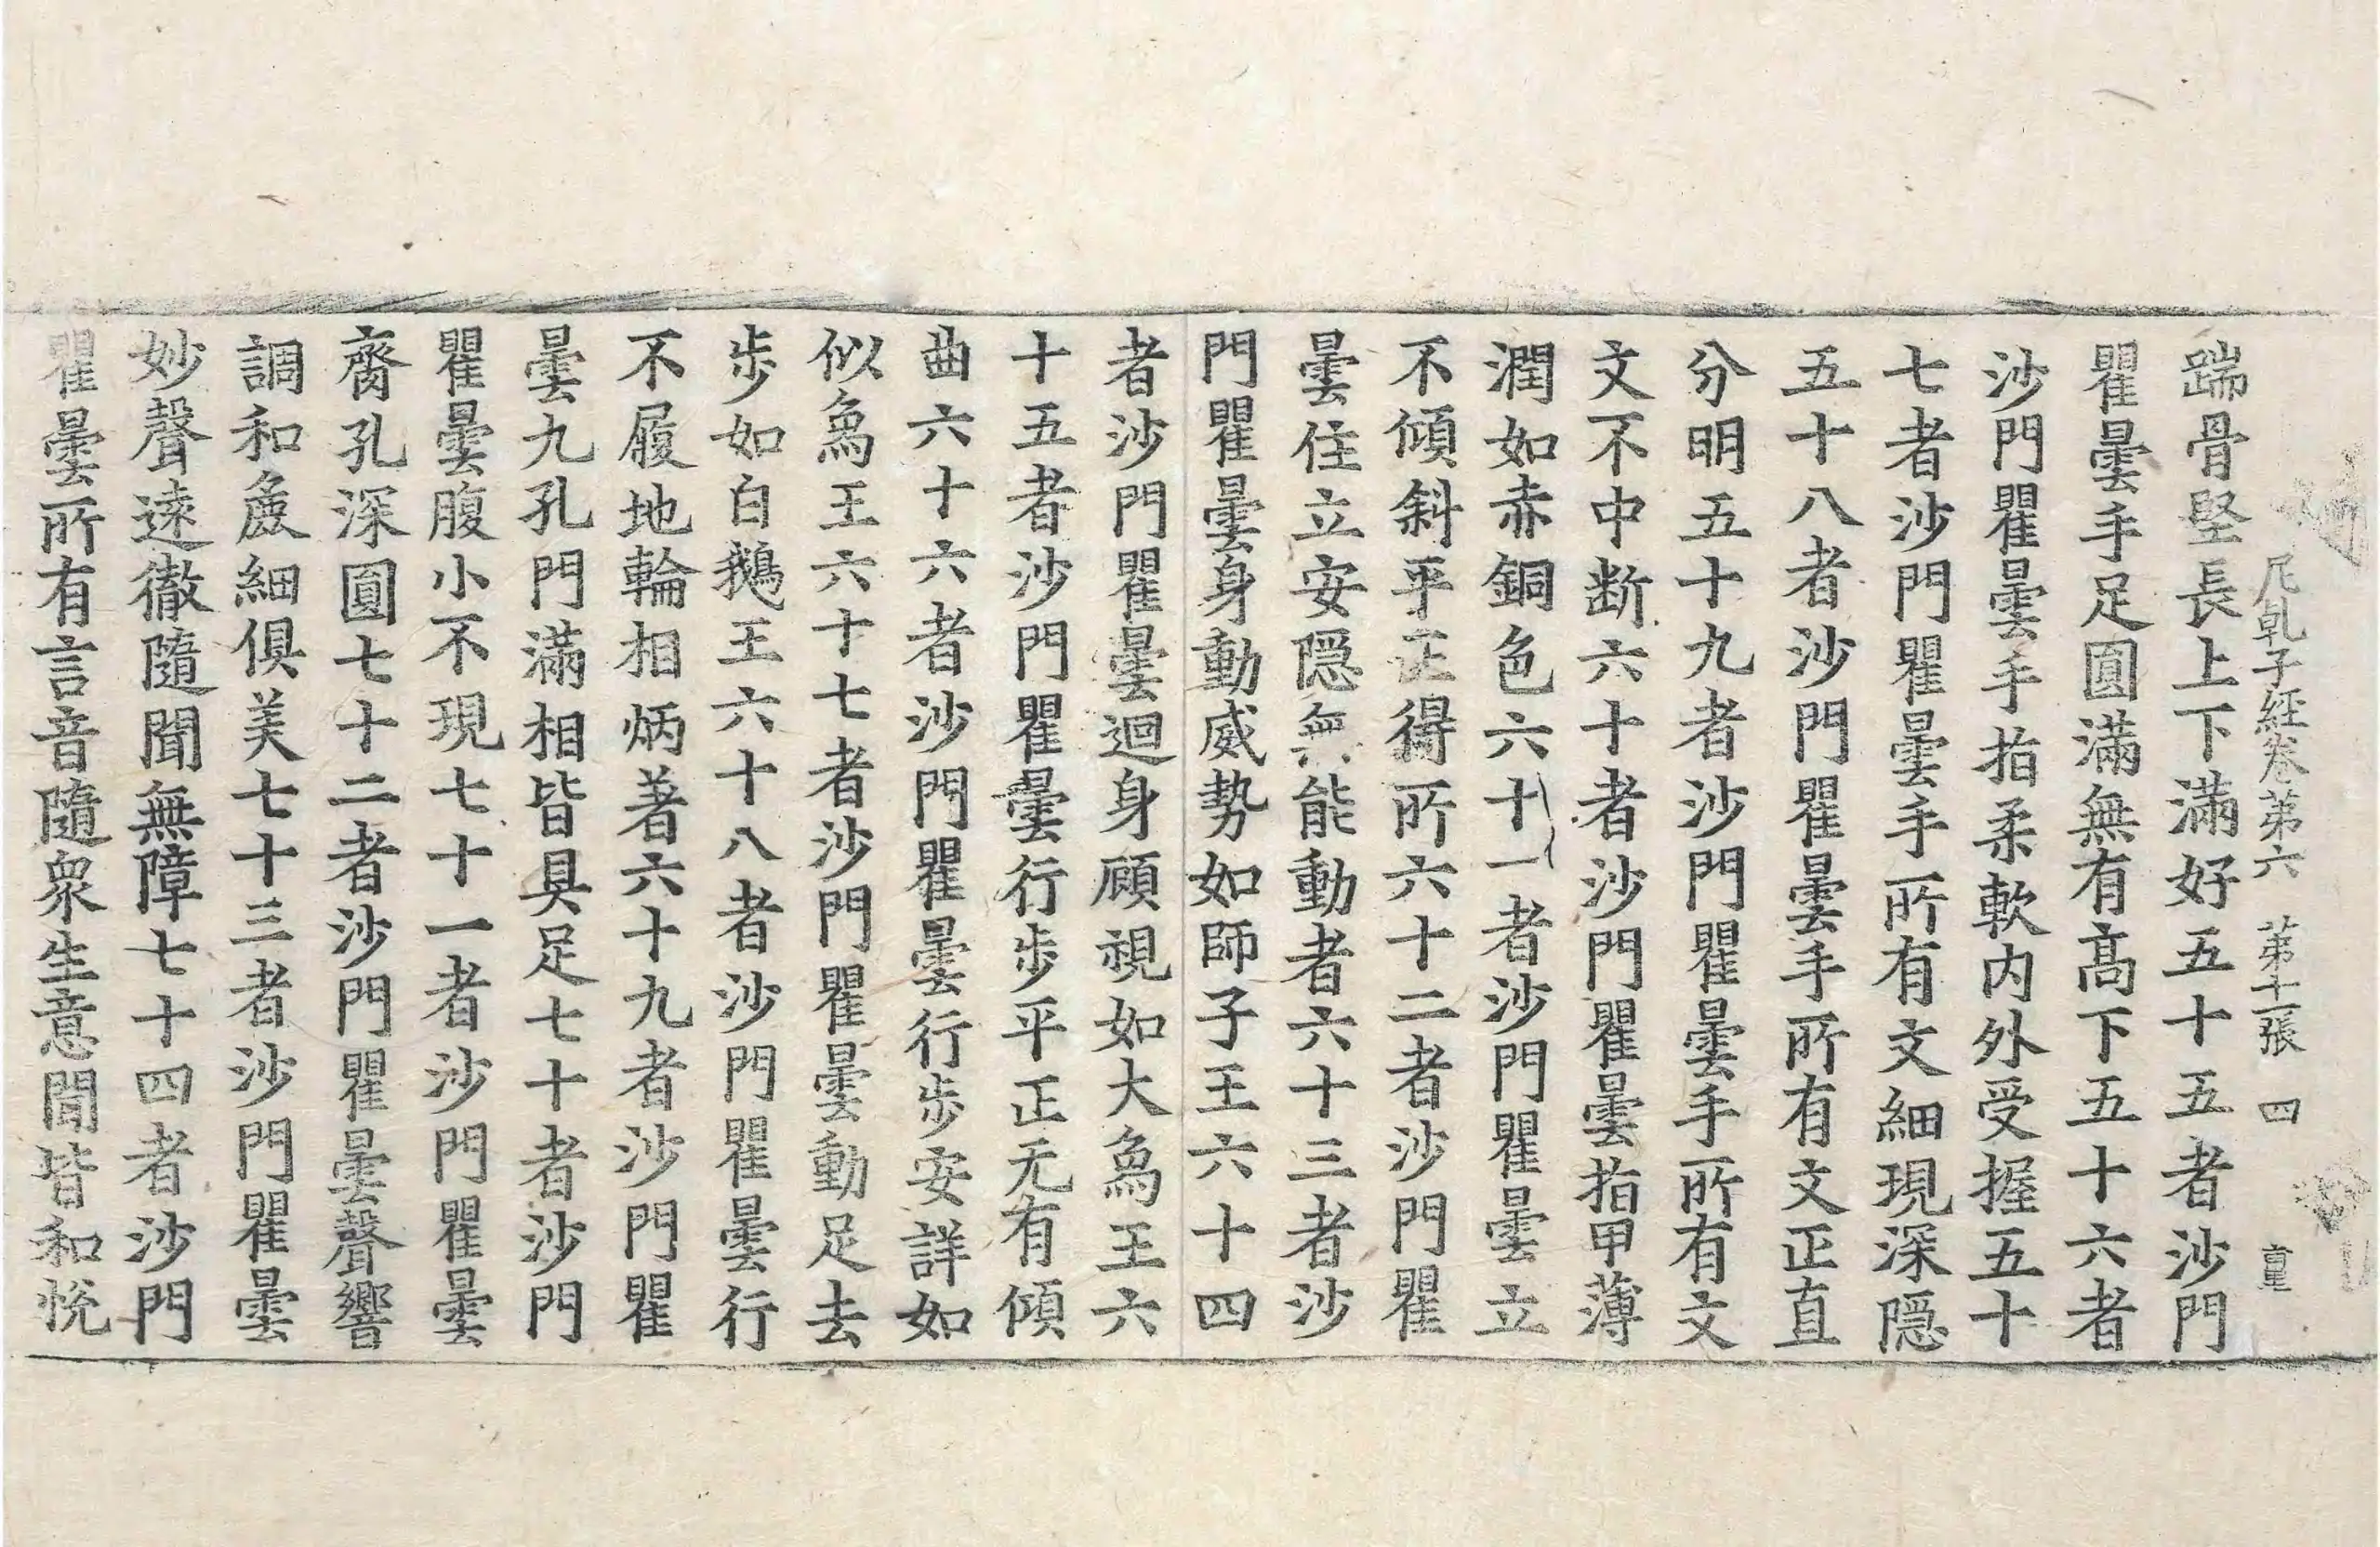 尼乹子経卷第六 第十一張 四 重
踹骨堅長上下滿好五十五者沙門
瞿曇手足圓滿無有髙下五十六者
沙門瞿曇手指柔軟内外受握五十
七者沙門瞿曇手所有文細現深隠
五十八者沙門瞿曇手所有文正直
分明五十九者沙門瞿曇手所有文
文不中断六十者沙門瞿曇指甲薄
潤如赤銅色六十一者沙門瞿曇立
不傾斜平正得所六十二者沙門瞿
曇住立安隠無能動者六十三者沙
門瞿曇身動威勢如師子王六十四
者沙門瞿曇迴身顧視如大象王六
十五者沙門瞿曇行步平正无有傾
曲六十六者沙門瞿曇行步安詳如
似象王六十七者沙門瞿曇動足去
步如白鵝王六十八者沙門瞿曇行
不履地輪相炳著六十九者沙門瞿
曇九孔門滿相皆具足七十者沙門
瞿曇腹小不現七十一者沙門瞿曇
齊孔深圓七十二者沙門瞿曇聲響
調和麁細俱美七十三者沙門瞿曇
妙聲遠徹隨聞無障七十四者沙門
瞿曇所有言音隨衆生意聞皆和悅